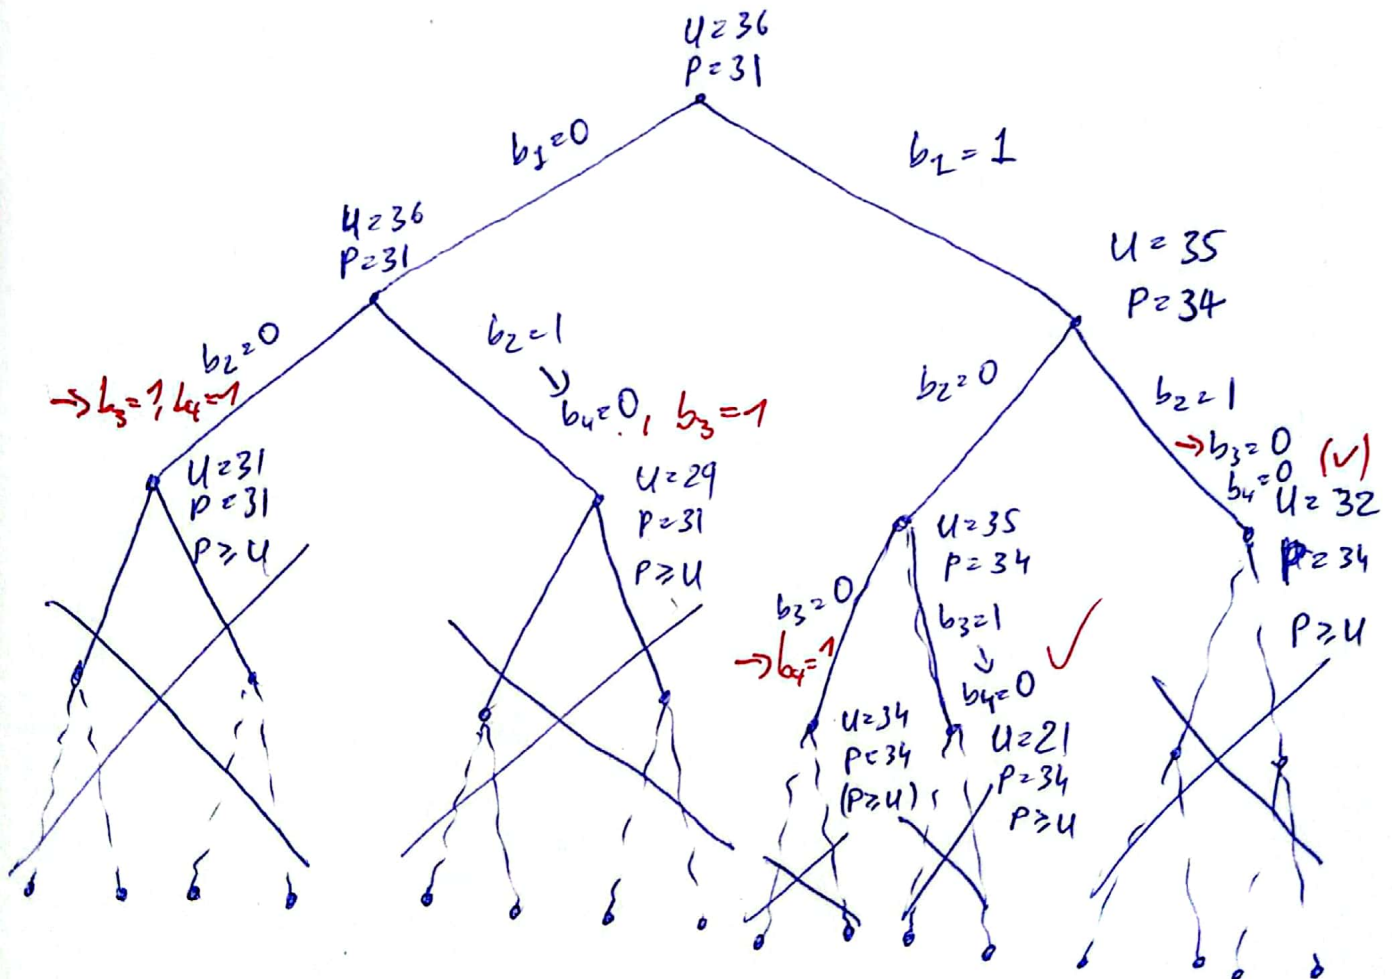 U=36
P=31
b₁=0
b₁=1
U=36
P=31
U=35
P=34
b₂=0
→b₃=1, b₄=1
b₂=1
↘
b₄=0, b₃=1
b₂=0
b₂=1
→b₃=0 (✓)
b₄=0
U=31
P=31
P≥U
U=29
P=31
P≥U
U=35
P=34
U=32
P=34
P≥U
b₃=0
→b₄=1
b₃=1
↓ ✓
b₄=0
U=34
P=34
(P≥U)
U=21
P=34
P≥U